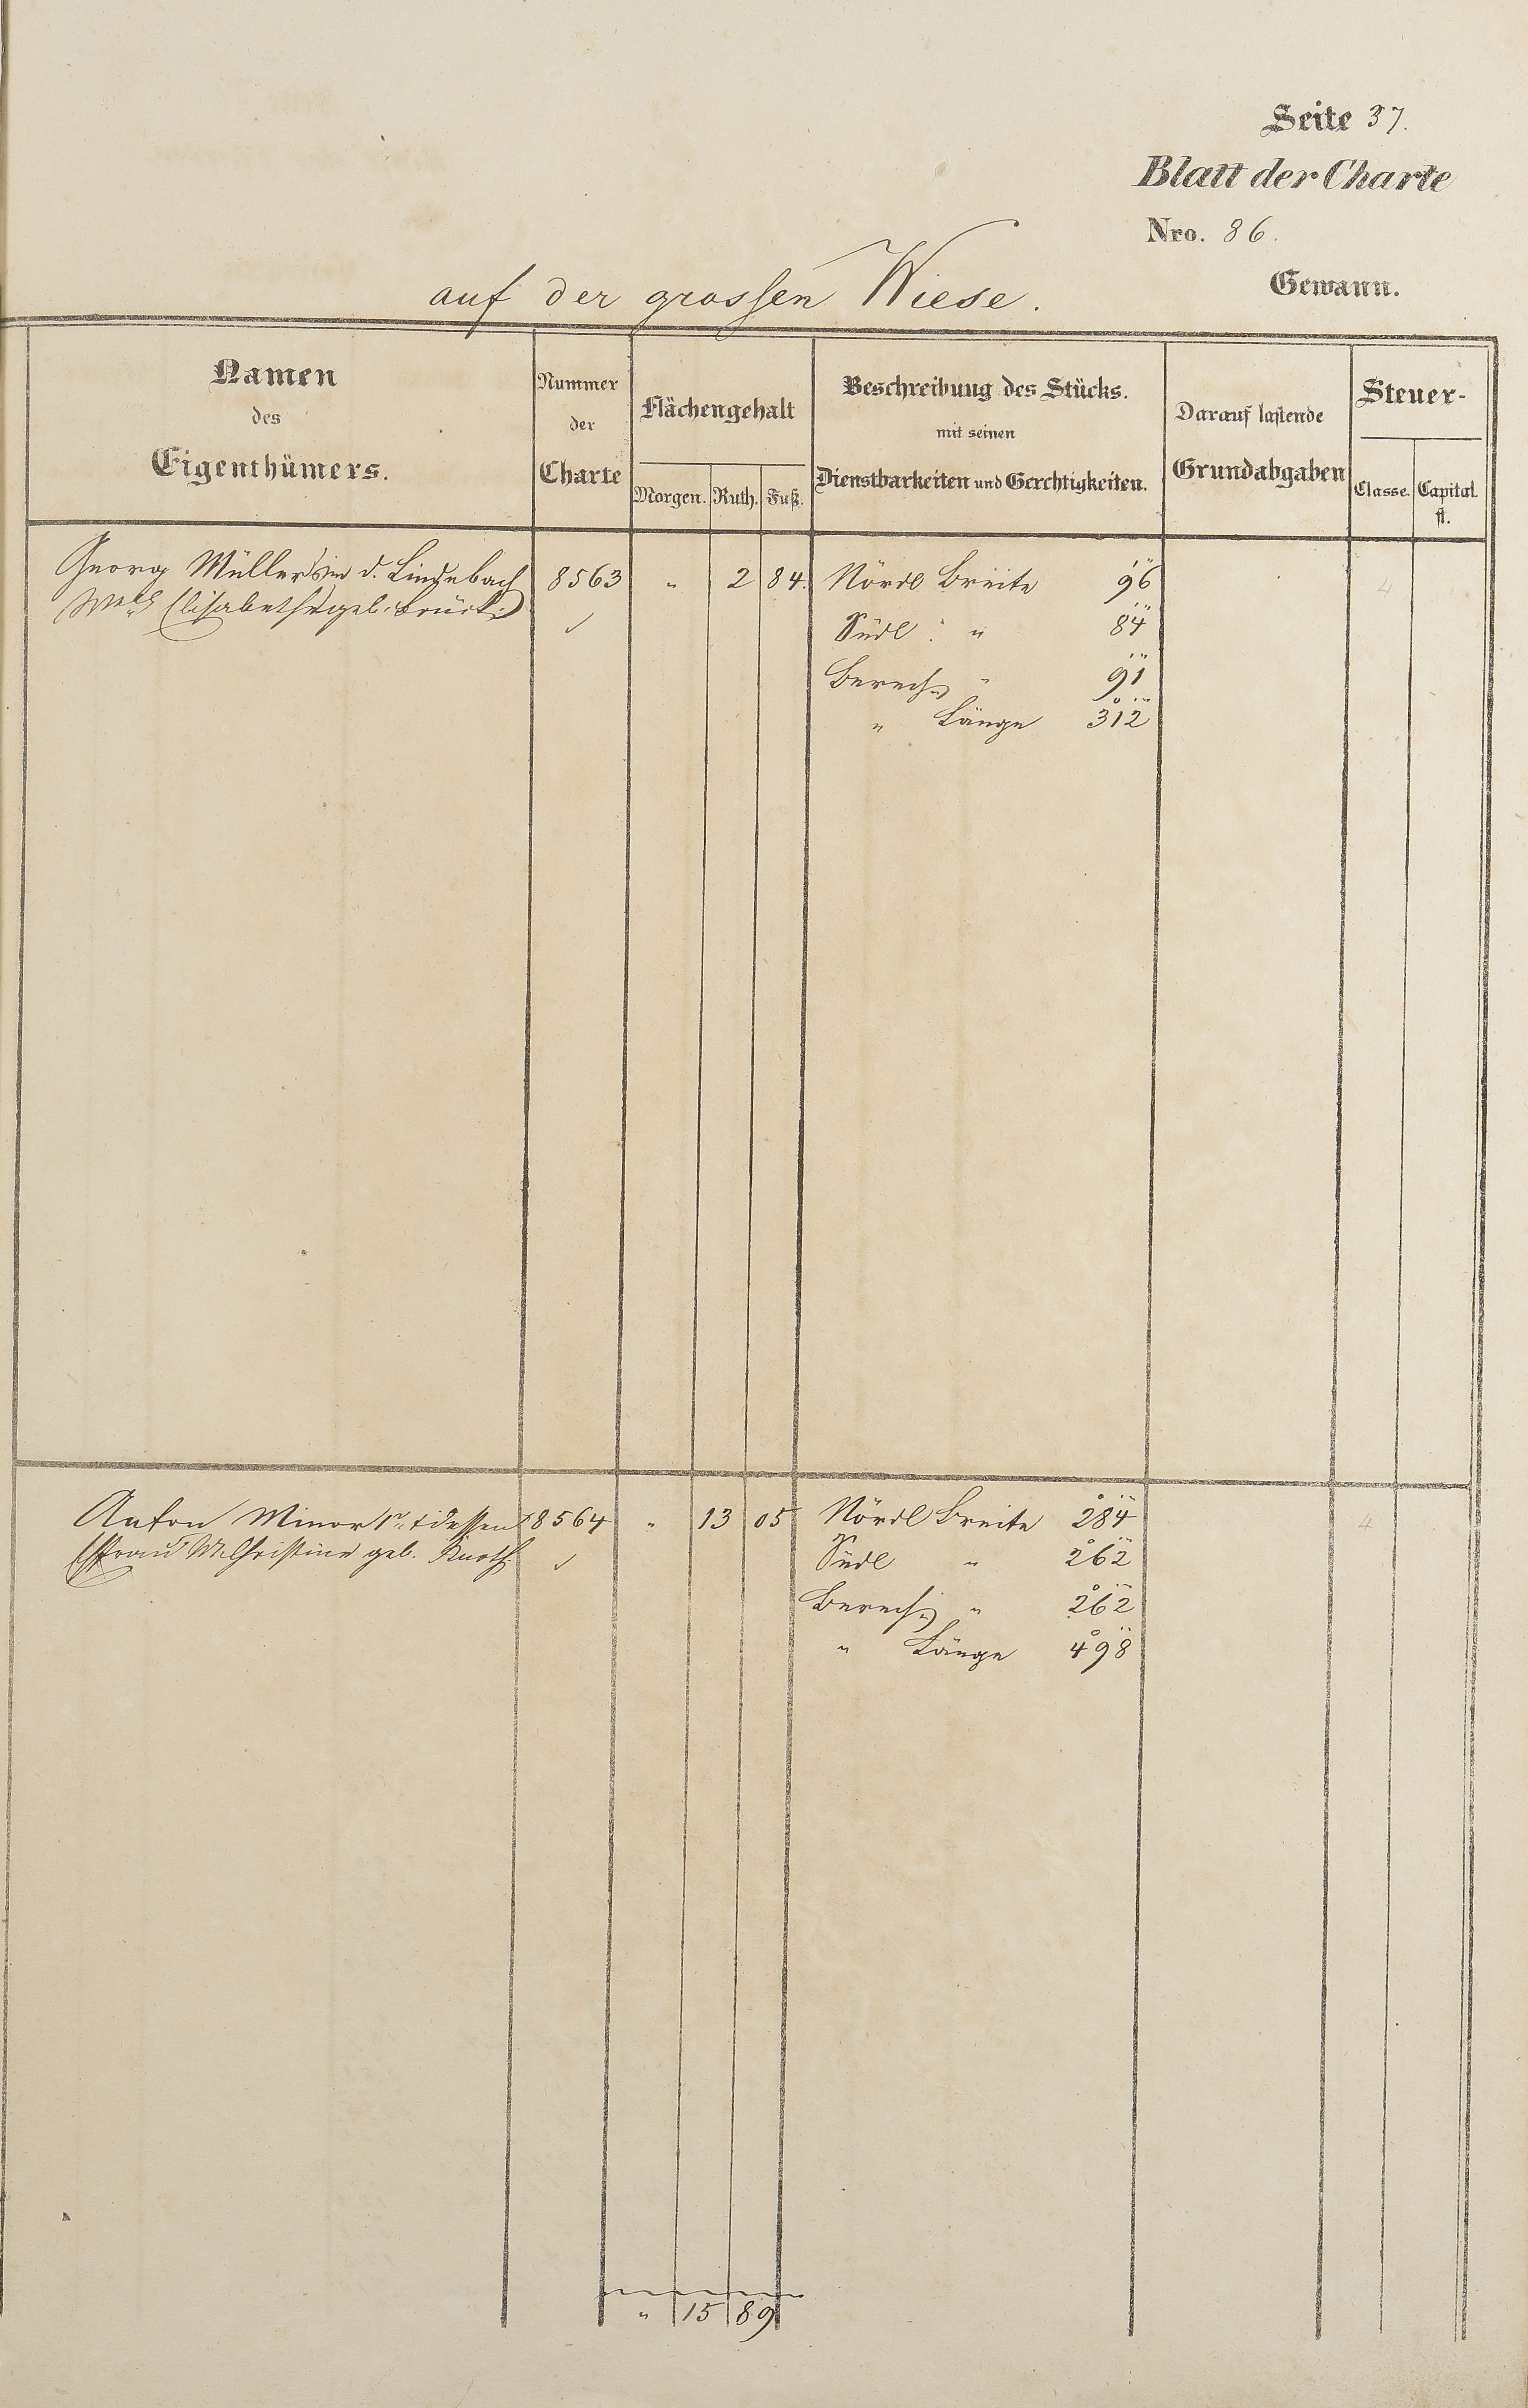 Seite 37.
Blatt der Charte
Nro. 86.
Gewann.
auf der grossen Wiese.
Namen
des
Eigenthümers.
Nummer
der
Charte
Flächengehalt
Morgen. Ruth. Fuß.
Beschreibung des Stücks.
mit seinen
Dienstbarkeiten und Gerechtigkeiten.
Darauf lastende
Grundabgaben
Steuer-
Classe. Capital.
fl.
Georg Müller's in d. Lindenbach 8563 " 2 84. Nördl Breite 96 4
Elisabetha geb. Brück
Südl. " 84
Berech. " 91
" Länge 312
Anton Minor 1r. & dessen 8564 " 13 05 Nördl Breite 284 4
Ehfrau M. Christine geb. Knoth Südl " 262
Berech. " 262
" Länge 498
" 15 89